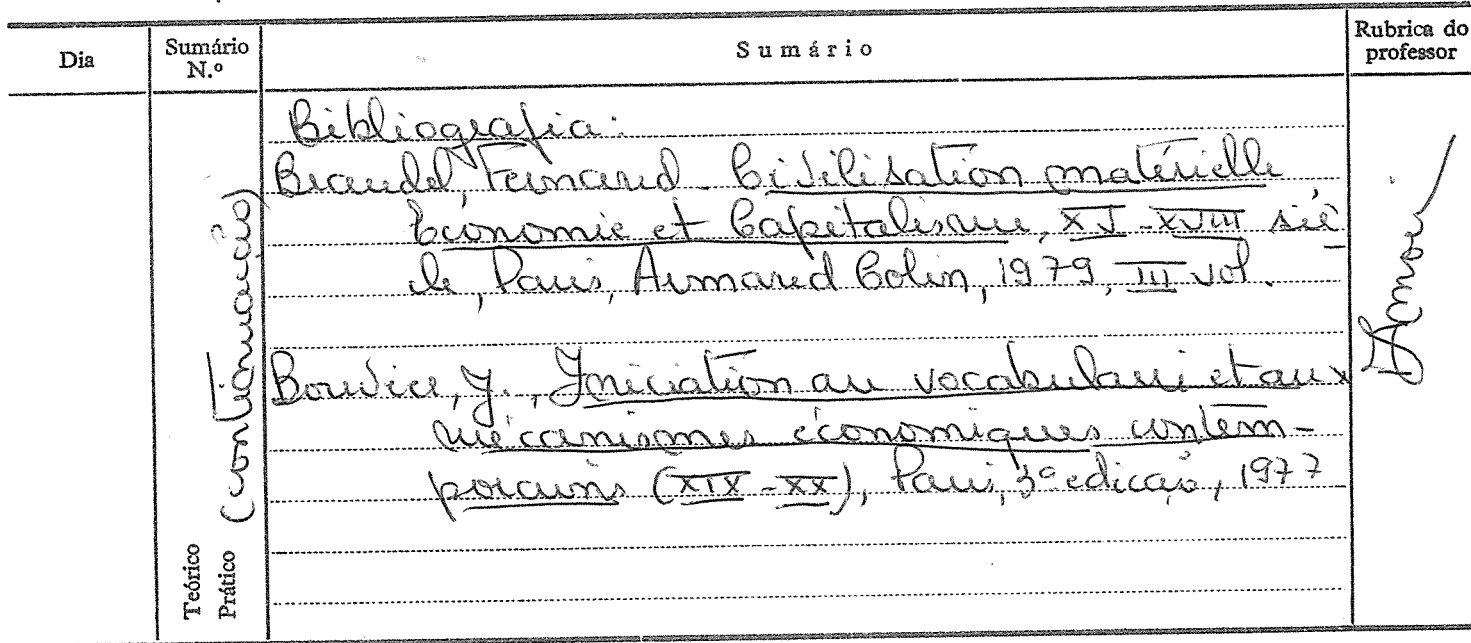 Dia
Sumário
N.º
Sumário
Rubrica do
professor
(continuação)
Teórico
Prático
Bibliografia:
Braudel, Fernand. Civilisation matérielle
Économie et Capitalisme, XV-XVIII siè
cle, Paris, Armand Colin, 1979, III vol.
Bouvier, J., Iniciation au vocabulaire et aux
mécanismes économiques contem-
porains (XIX-XX), Paris, 3ª edição, 1977